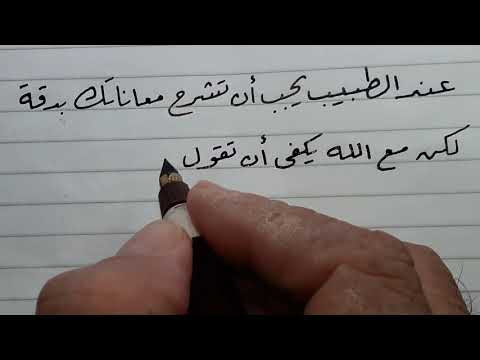 عند الطبيب يجب أن تشرح معاناتك بدقة
لكن مع الله يكفي أن تقول